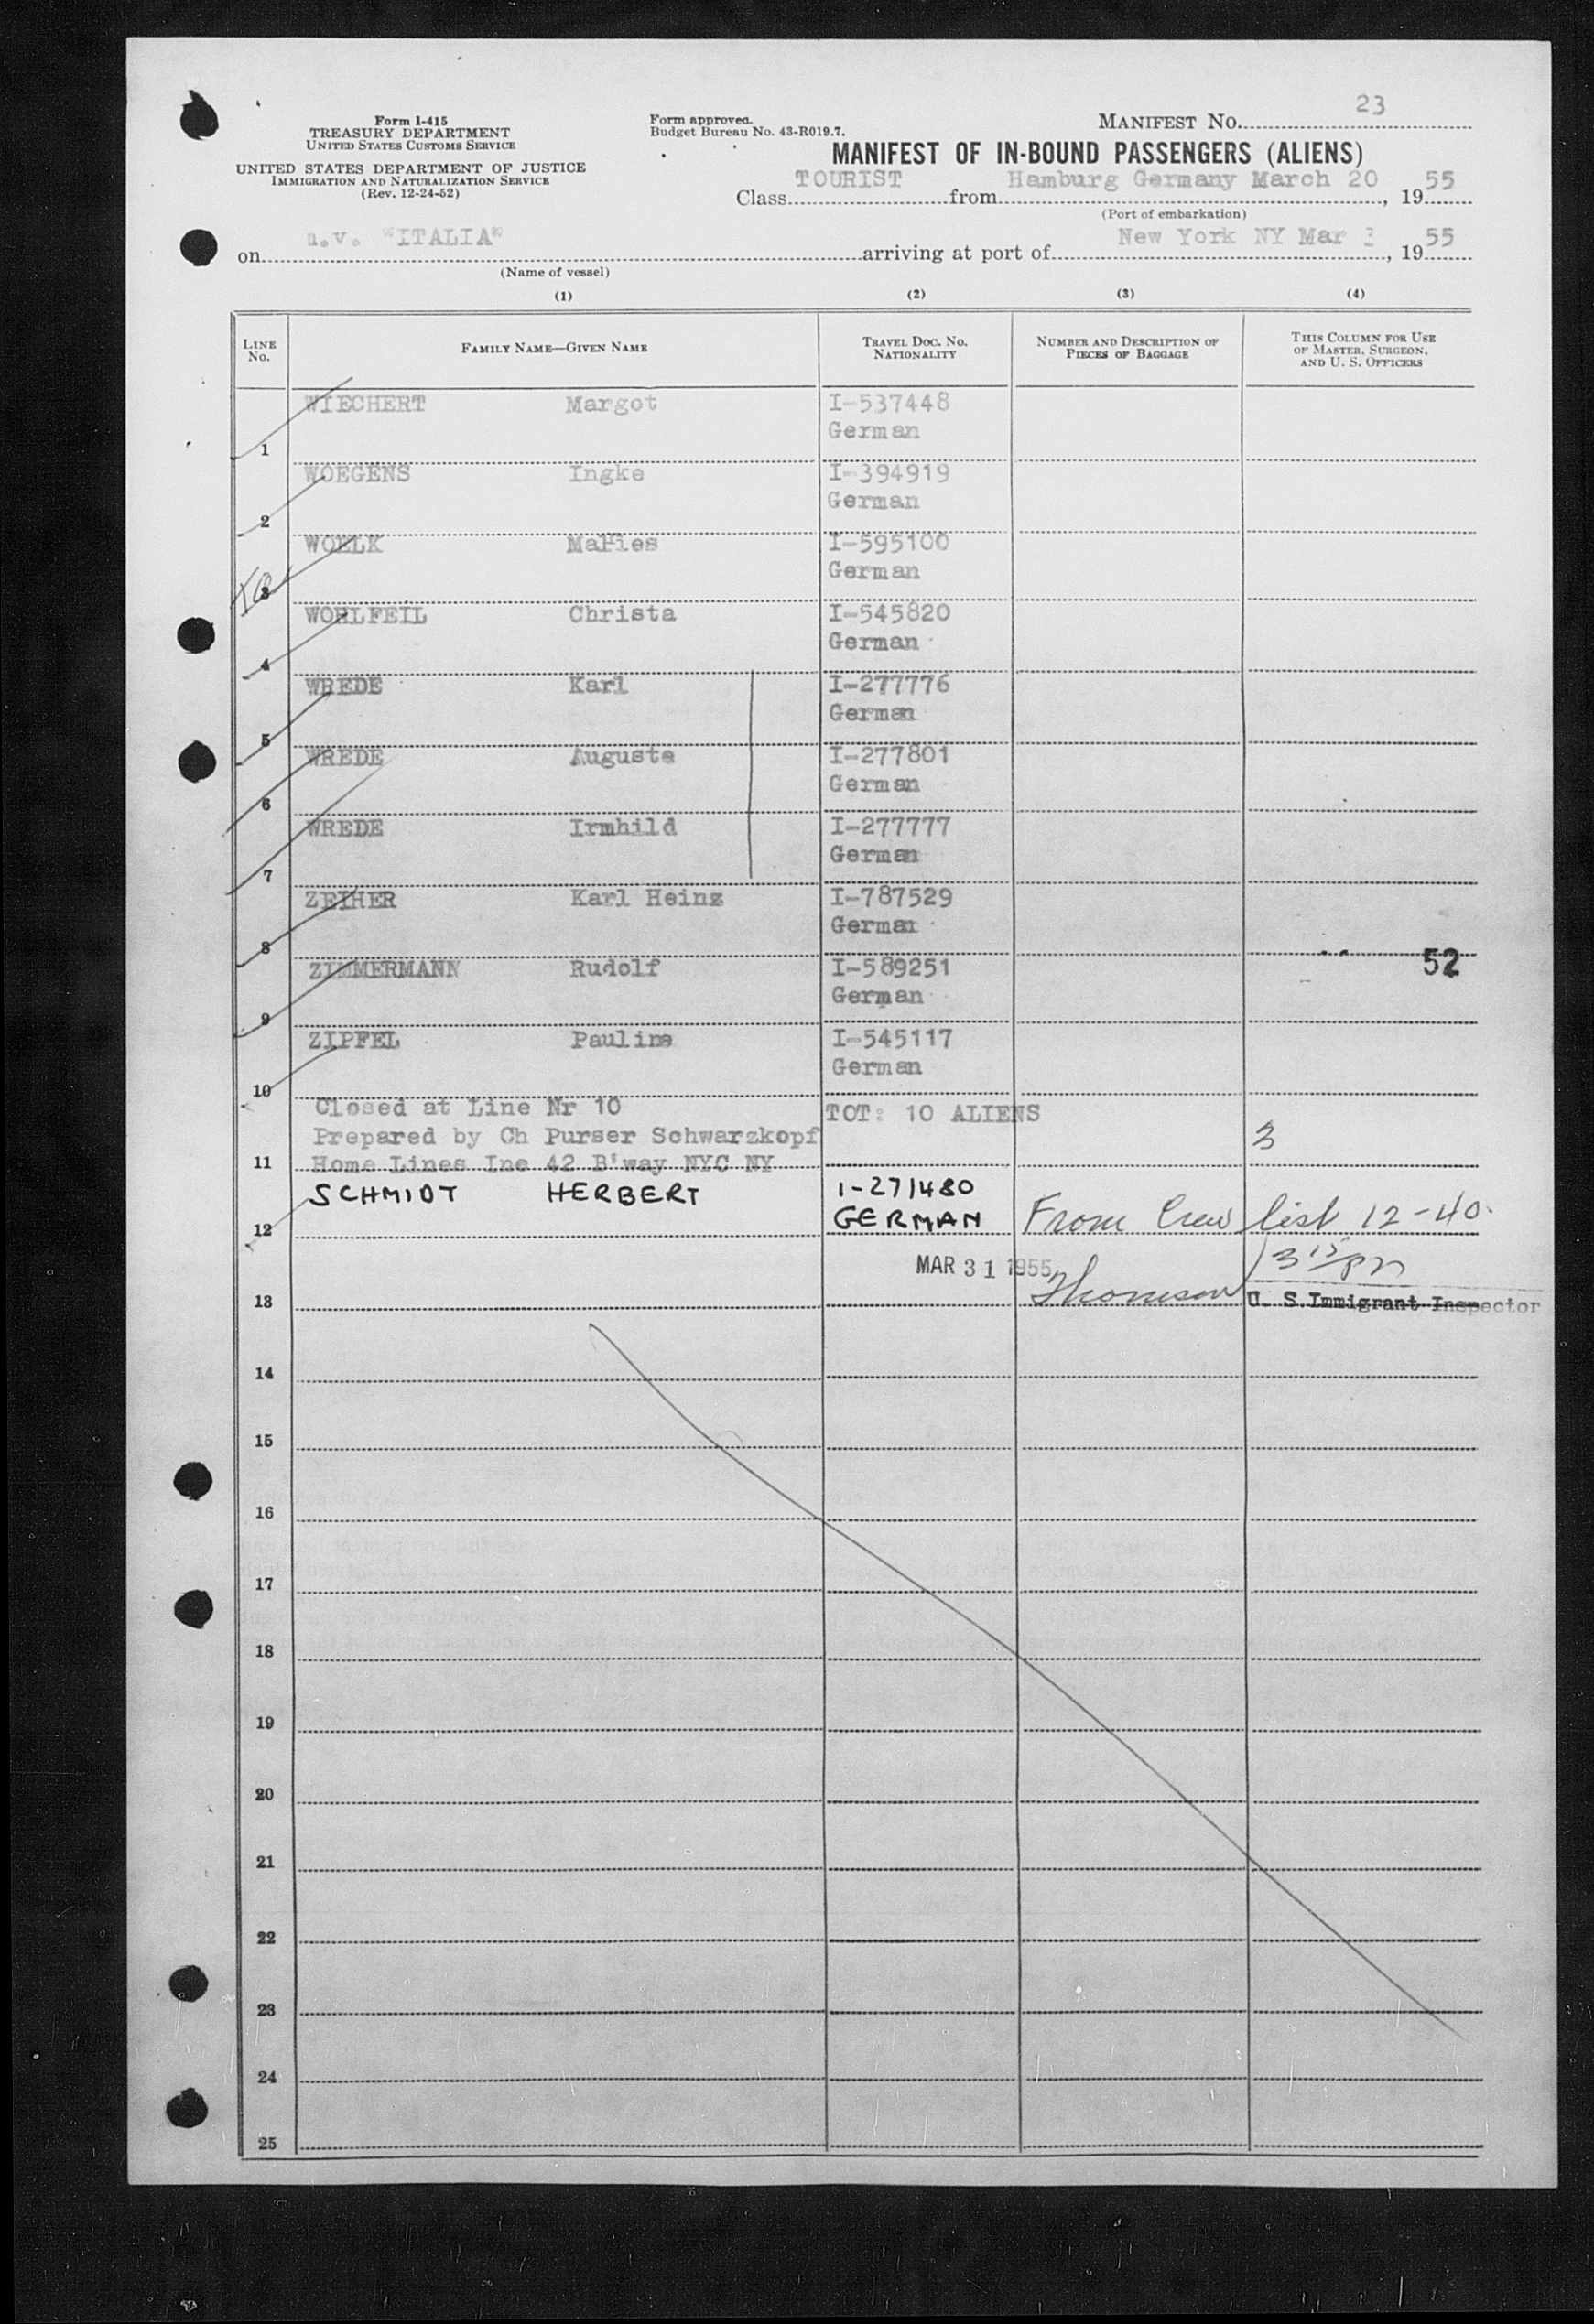 Form I-415
TREASURY DEPARTMENT
UNITED STATES CUSTOMS SERVICE
UNITED STATES DEPARTMENT OF JUSTICE
IMMIGRATION AND NATURALIZATION SERVICE
(Rev. 12-24-52)
Form approved.
Budget Bureau No. 43-R019.7.
MANIFEST NO. 23
MANIFEST OF IN-BOUND PASSENGERS (ALIENS)
Class TOURIST from Hamburg Germany March 20, 1955
(Port of embarkation)
on m.v. "ITALIA" arriving at port of New York NY Mar 3, 1955
(Name of vessel)
(1) (2) (3) (4)
LINE NO. FAMILY NAME—GIVEN NAME TRAVEL DOC. NO. NATIONALITY NUMBER AND DESCRIPTION OF PIECES OF BAGGAGE THIS COLUMN FOR USE OF MASTER, SURGEON, AND U. S. OFFICERS
WIECHERT Margot I-537448
German
1
WOEGENS Ingke I-394919
German
2
WOELK Maries I-595100
German
3
WOHLFEIL Christa I-545820
German
4
WREDE Karl I-277776
German
5
WREDE Auguste I-277801
German
6
WREDE Irmhild I-277777
German
7
ZEIHER Karl Heinz I-787529
German
8
52
ZIMMERMANN Rudolf I-589251
German
9
ZIPFEL Pauline I-545117
German
10
Closed at Line Nr 10 TOT: 10 ALIENS
Prepared by Ch Purser Schwarzkopf 3
11 Home Lines Inc 42 B'way NYC NY
SCHMIDT HERBERT I-271480
12 GERMAN From Crew list 12-40.
MAR 31 1955 3 15 pm
13 Thomson U. S. Immigrant Inspector
14
15
16
17
18
19
20
21
22
23
24
25